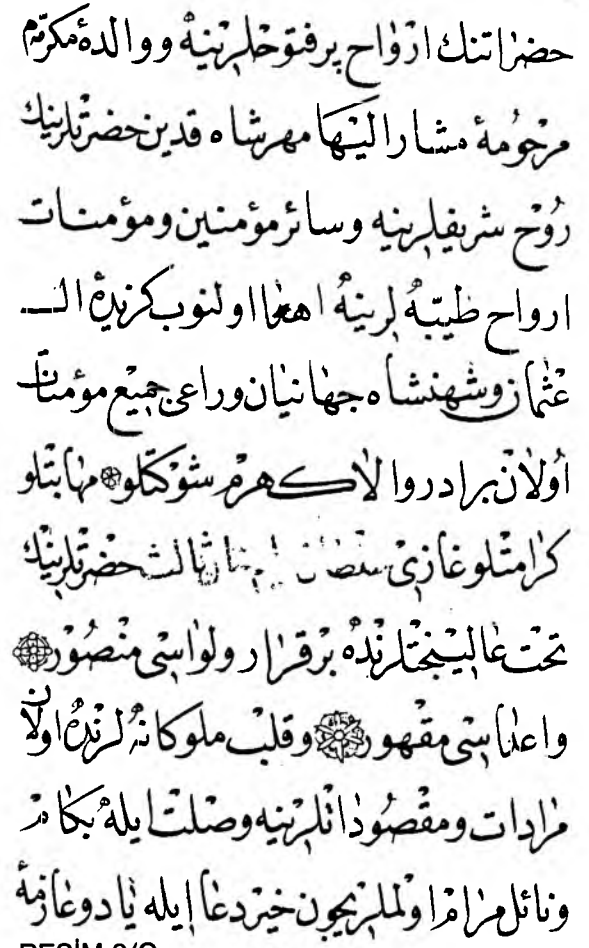 حضراتنك ارواح پرفتوحلرينه ووالدۀ مكرّمۀ
مرحومۀ مشار اليها مهرشاه قدين حضرتلرينك
روح شريفلرينه وسائر مؤمنين ومؤمنات
ارواح طيّبه لرينه اهدا اولنوب كزيدۀ الــ
عثمان وشهنشاه جهانيان وراعى جميع مؤمنان
اولان برادر والاكهرم شوكتلو مهابتلو
كرامتلو غازى سلطان سليم خان ثالث حضرتلرينك
تخت عاليبختلرنده برقرار ولواسى منصور
واعداسى مقهور وقلب ملوكانه لرنده اولان
مرادات ومقصوداتلرينه وصلت ايله بكام
ونائل مرام اولملريچون خير دعا ايله ياد وعازمۀ